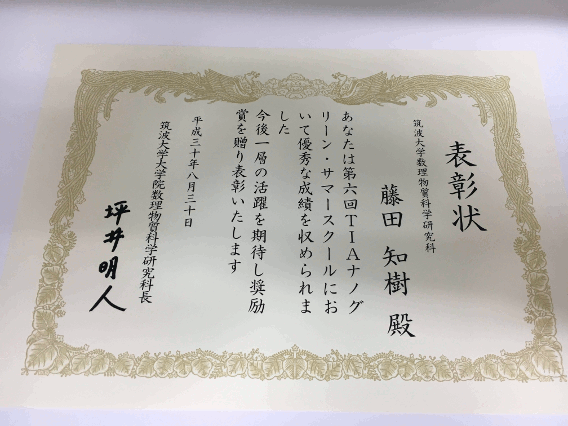 表彰状
筑波大学数理物質科学研究科
藤田 知樹 殿
あなたは第六回TIAナノグ
リーン・サマースクールにお
いて優秀な成績を収められま
した
今後一層の活躍を期待し奨励
賞を贈り表彰いたします
平成三十年八月三十日
筑波大学大学院数理物質科学研究科長
坪井明人